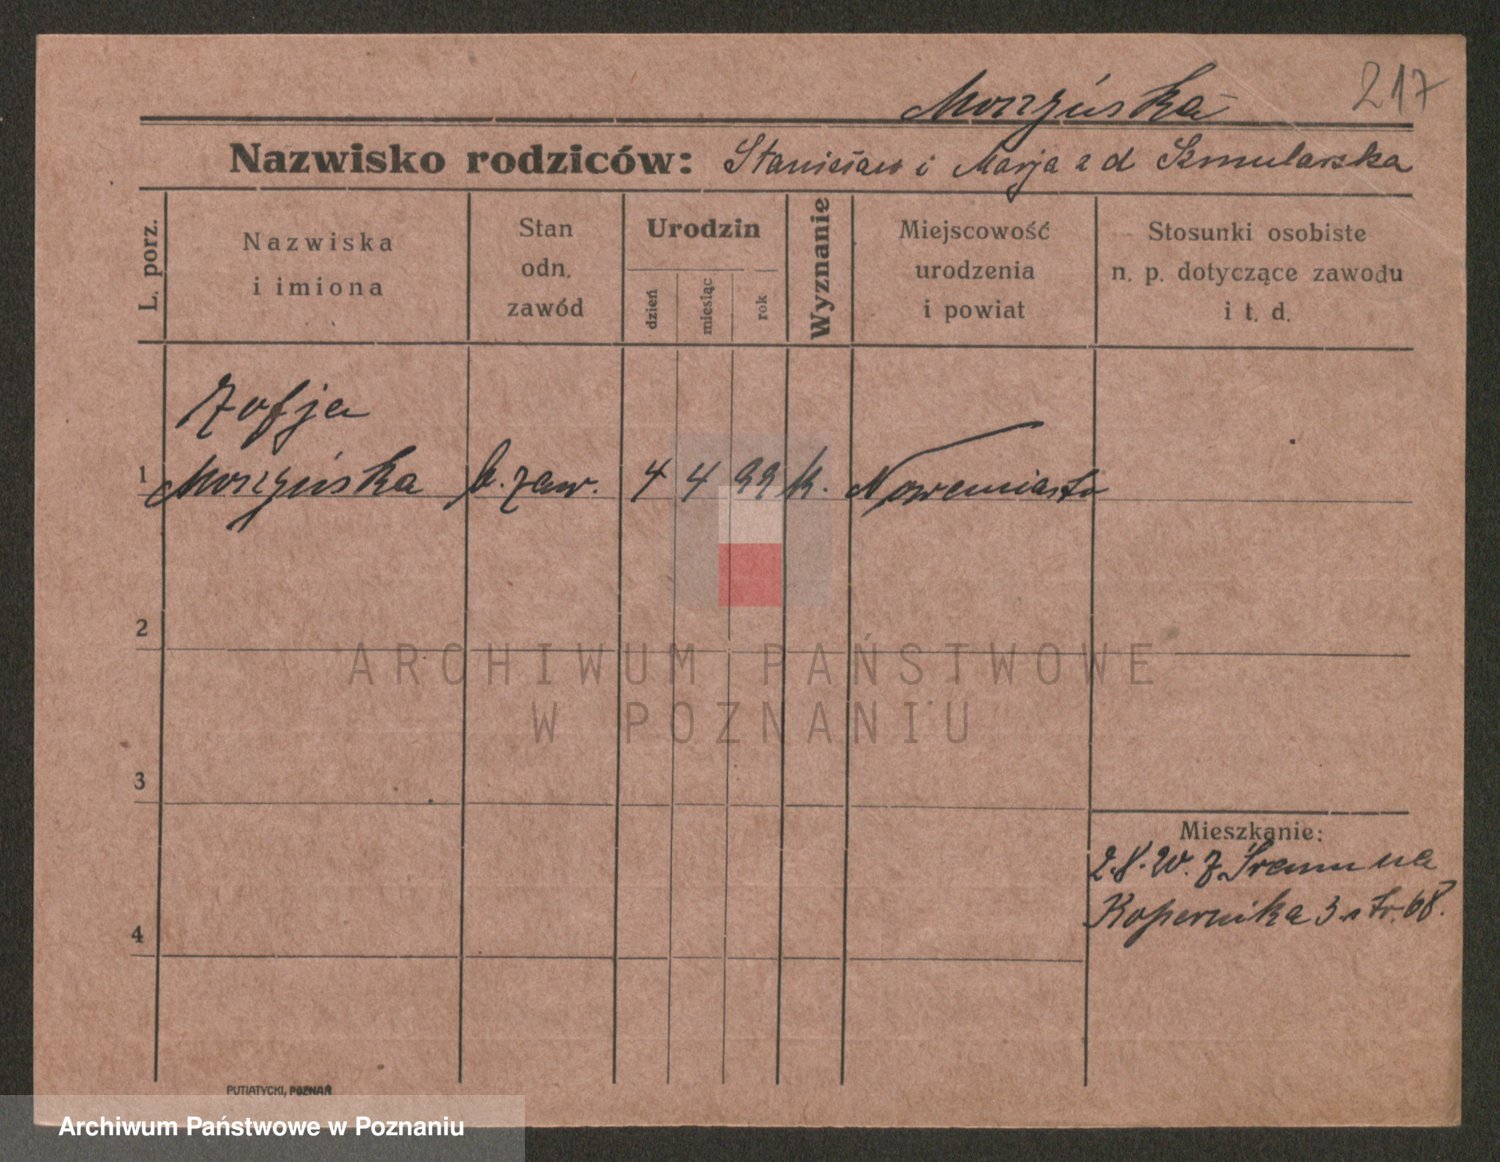 217
Morzyńska
Nazwisko rodziców: Stanisław i Marja z d Szmularska
L. porz.
Nazwiska
i imiona
Stan
odn.
zawód
Urodzin
dzień
miesiąc
rok
Wyznanie
Miejscowość
urodzenia
i powiat
Stosunki osobiste
n. p. dotyczące zawodu
i t. d.
Zofja
1 Morzyńska b. zaw. 4 4 99 k. Nowemiasto
2
ARCHIWUM PAŃSTWOWE
W POZNANIU
3
Mieszkanie:
2.8. z Śremu na
Kopernika 3 str. 68.
4
PUTIATYCKI, POZNAŃ
Archiwum Państwowe w Poznaniu